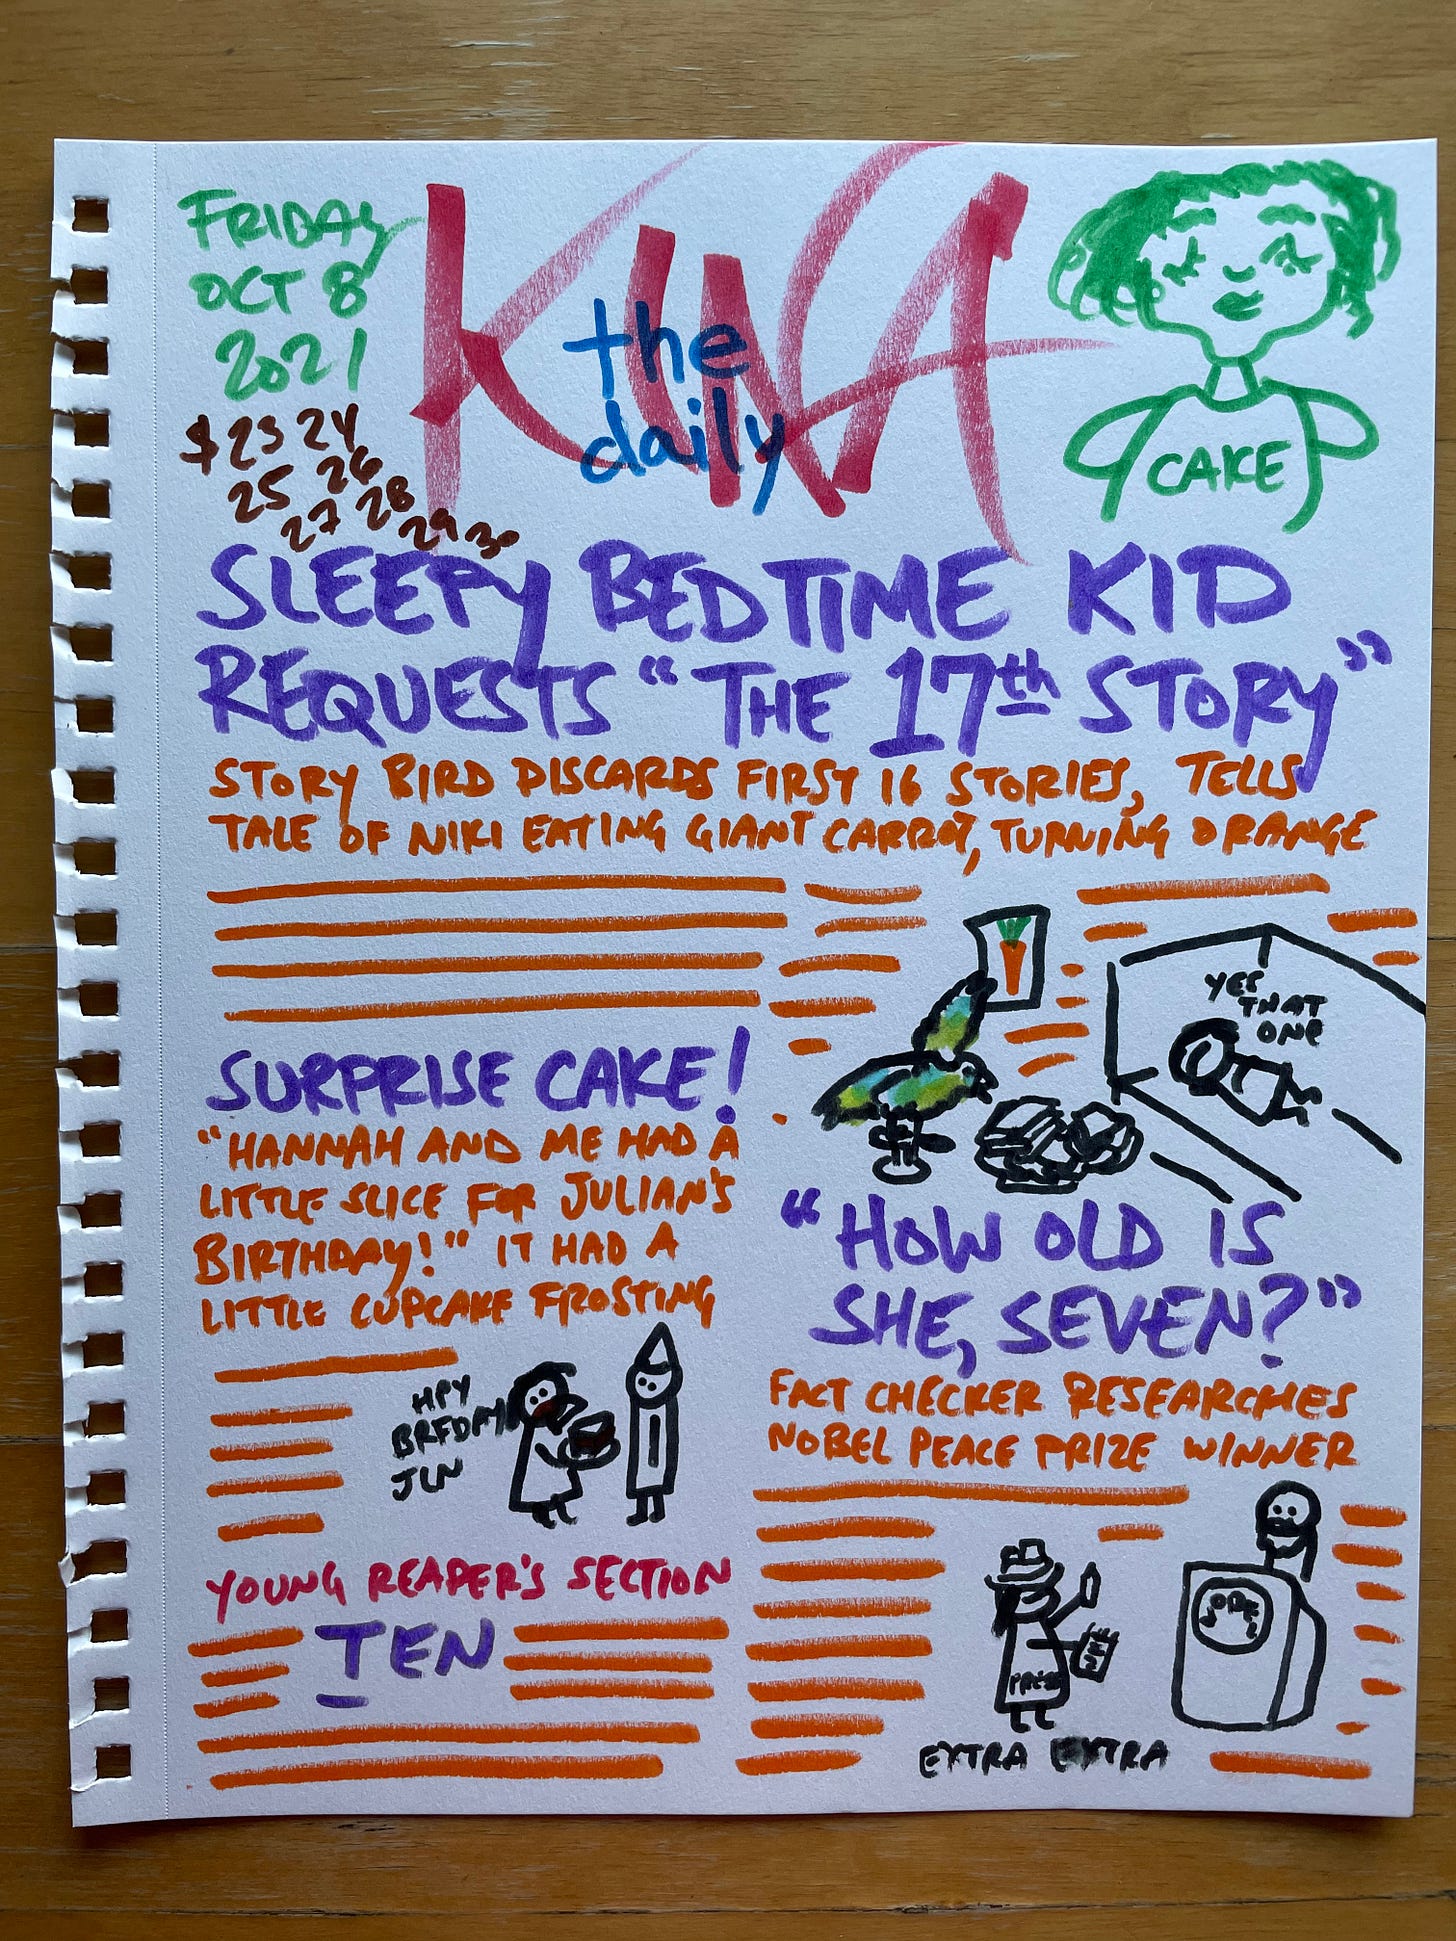 FRIDAY
OCT 8
2021
$23 24
25 26
27 28
29 30
the
daily
KINA
CAKE
SLEEPY BEDTIME KID
REQUESTS "THE 17th STORY"
STORY BIRD DISCARDS FIRST 16 STORIES, TELLS
TALE OF NIKI EATING GIANT CARROT, TURNING ORANGE
YES
THAT
ONE
SURPRISE CAKE!
"HANNAH AND ME HAD A
LITTLE SLICE FOR JULIAN'S
BIRTHDAY!" IT HAD A
LITTLE CUPCAKE FROSTING
HPY
BRFDAY
JLN
"HOW OLD IS
SHE, SEVEN?"
FACT CHECKER RESEARCHES
NOBEL PEACE PRIZE WINNER
PRESS
EXTRA EXTRA
YOUNG READER'S SECTION
TEN